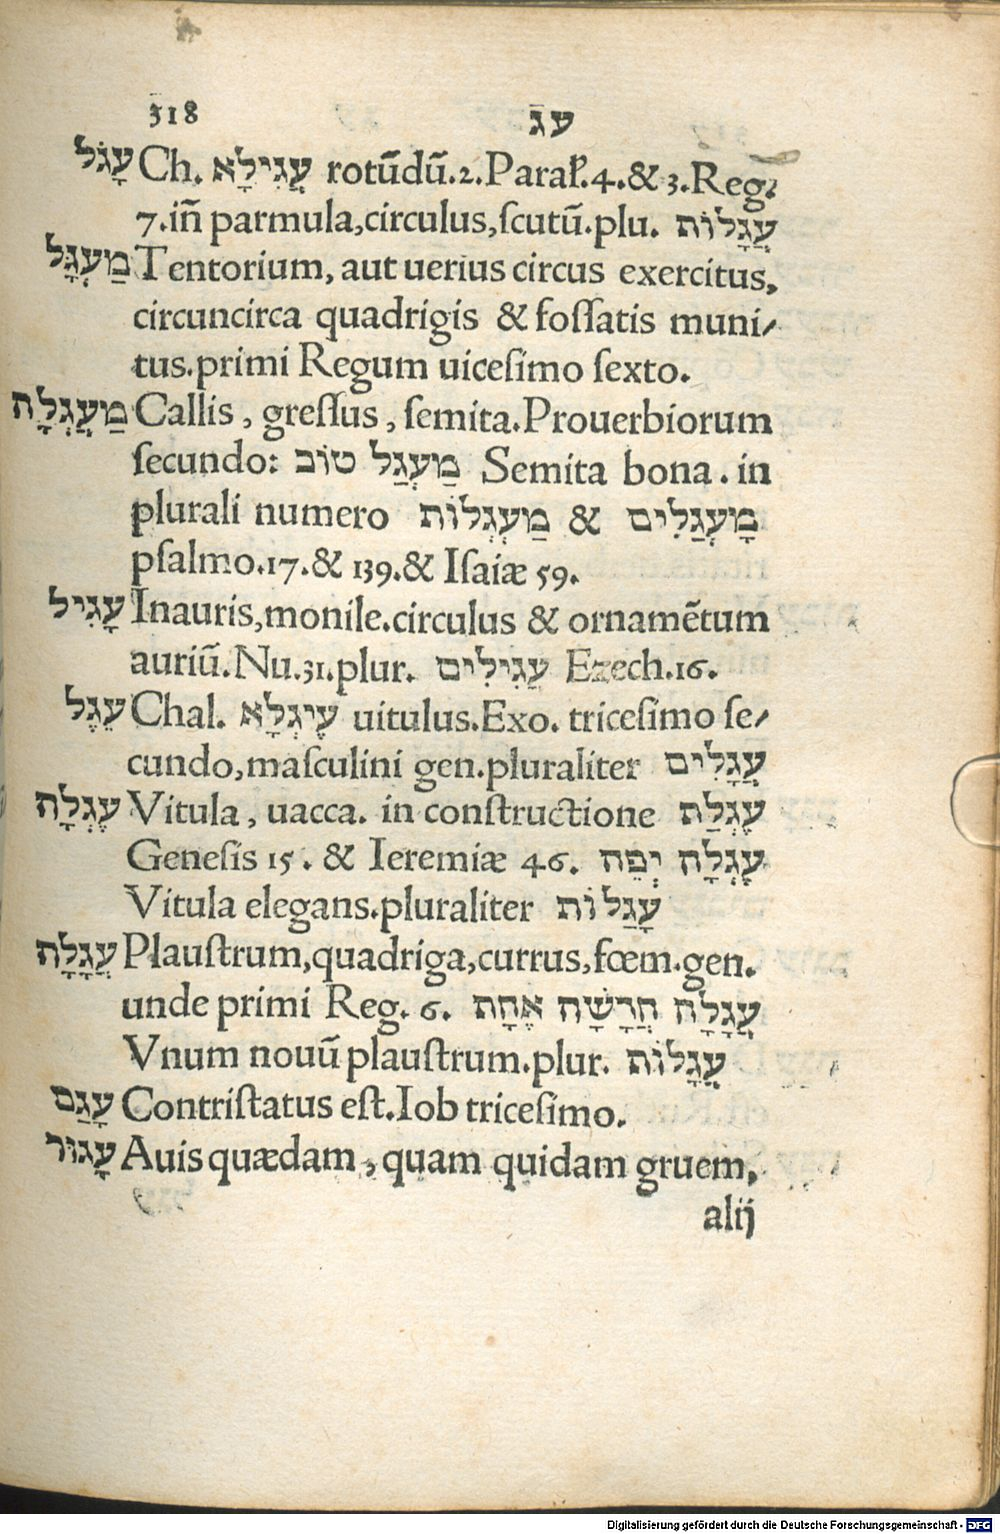 318 עג
עָגֹל Ch. עֲגִילָא rotūdū.2.Paral.4.& 3.Reg.
7.iñ parmula,circulus,ſcutū.plu. עֲגָלוֹת
מַעְגָּל Tentorium, aut uerius circus exercitus,
circuncirca quadrigis & foſſatis muni/
tus.primi Regum uiceſimo ſexto.
מַעֲגְלָה Callis, greſſus, ſemita.Prouerbiorum
ſecundo: מַעְגַּל טוֹב Semita bona. in
plurali numero מַעְגְּלוֹת & מָעְגַּלִים
pſalmo.17.& 139.& Iſaiæ 59.
עָגִיל Inauris,monile.circulus & ornamētum
auriū.Nu.31.plur. עֲגִילִים Ezech.16.
עֶגֶל Chal. עֶיגְלָא uitulus.Exo. triceſimo ſe/
cundo,maſculini gen.pluraliter עֲגָלִים
עֶגְלָה Vitula, uacca. in conſtructione עֶגְלַת
Geneſis 15. & Ieremiæ 46. עֶגְלָה יְפֵה
Vitula elegans.pluraliter עָגַלוֹת
עֲגָלָה Plauſtrum,quadriga,currus,fœm.gen.
unde primi Reg. 6. עֲגָלָה חֲרָשָׁה אֶחָת
Vnum nouū plauſtrum.plur. עֲגָלוֹת
עָגַם Contriſtatus eſt.Iob triceſimo.
עָגוּר Auis quædam, quam quidam gruem,
alij
Digitalisierung gefördert durch die Deutsche Forschungsgemeinschaft - DFG